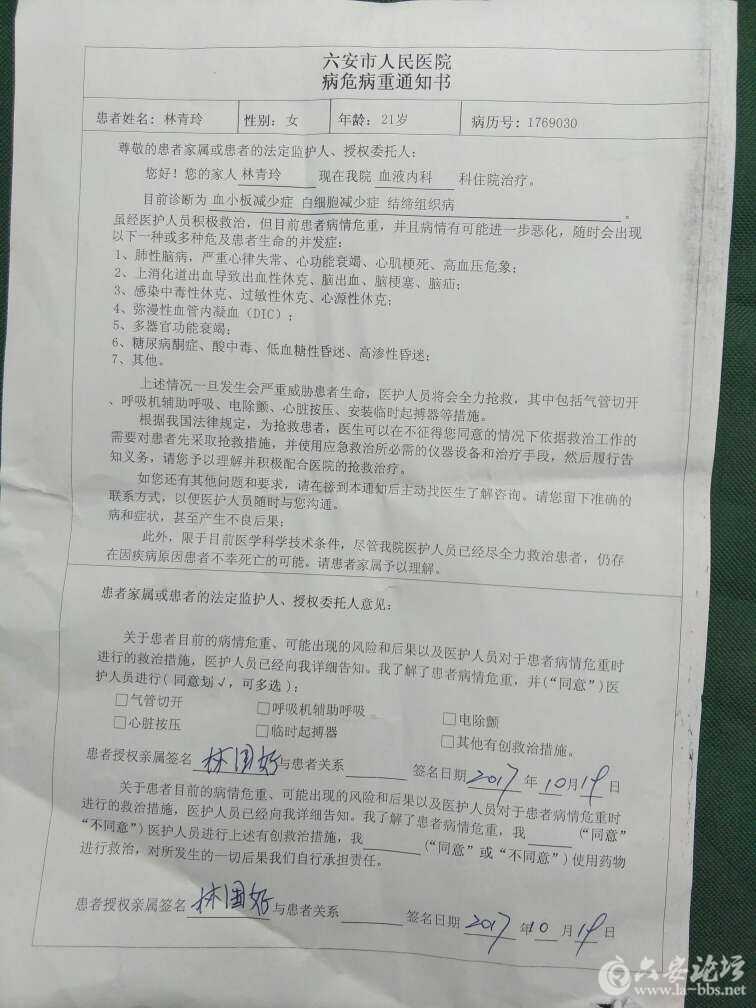 六安市人民医院
病危病重通知书
患者姓名：林青玲 性别：女 年龄：21岁 病历号：1769030
尊敬的患者家属或患者的法定监护人、授权委托人：
您好！您的家人 林青玲 现在我院 血液内科 科住院治疗。
目前诊断为 血小板减少症 白细胞减少症 结缔组织病 。
虽经医护人员积极救治，但目前患者病情危重，并且病情有可能进一步恶化，随时会出现
以下一种或多种危及患者生命的并发症：
1、肺性脑病，严重心律失常、心功能衰竭、心肌梗死、高血压危象；
2、上消化道出血导致出血性休克、脑出血、脑梗塞、脑疝；
3、感染中毒性休克、过敏性休克、心源性休克；
4、弥漫性血管内凝血（DIC）；
5、多器官功能衰竭；
6、糖尿病酮症、酸中毒、低血糖性昏迷、高渗性昏迷；
7、其他。
上述情况一旦发生会严重威胁患者生命，医护人员将会全力抢救，其中包括气管切开
、呼吸机辅助呼吸、电除颤、心脏按压、安装临时起搏器等措施。
根据我国法律规定，为抢救患者，医生可以在不征得您同意的情况下依据救治工作的
需要对患者先采取抢救措施，并使用应急救治所必需的仪器设备和治疗手段，然后履行告
知义务，请您予以理解并积极配合医院的抢救治疗。
如您还有其他问题和要求，请在接到本通知后主动找医生了解咨询。请您留下准确的
联系方式，以便医护人员随时与您沟通。
病和症状，甚至产生不良后果；
此外，限于目前医学科学技术条件，尽管我院医护人员已经尽全力救治患者，仍存
在因疾病原因患者不幸死亡的可能。请患者家属予以理解。
患者家属或患者的法定监护人、授权委托人意见：
关于患者目前的病情危重、可能出现的风险和后果以及医护人员对于患者病情危重时
进行的救治措施，医护人员已经向我详细告知。我了解了患者病情危重，并(“同意”)医
护人员进行（同意划√，可多选）：
□气管切开 □呼吸机辅助呼吸 □电除颤
□心脏按压 □临时起搏器 □其他有创救治措施。
患者授权亲属签名 林国好 与患者关系 签名日期 2017 年 10 月 19 日
关于患者目前的病情危重、可能出现的风险和后果以及医护人员对于患者病情危重时
进行的救治措施，医护人员已经向我详细告知。我了解了患者病情危重，我 （“同意”
“不同意”）医护人员进行上述有创救治措施，我 （“同意”或“不同意”）使用药物
进行救治，对所发生的一切后果我们自行承担责任。
患者授权亲属签名 林国好 与患者关系 签名日期 2017 年 10 月 19 日
六安论坛
www.la-bbs.net